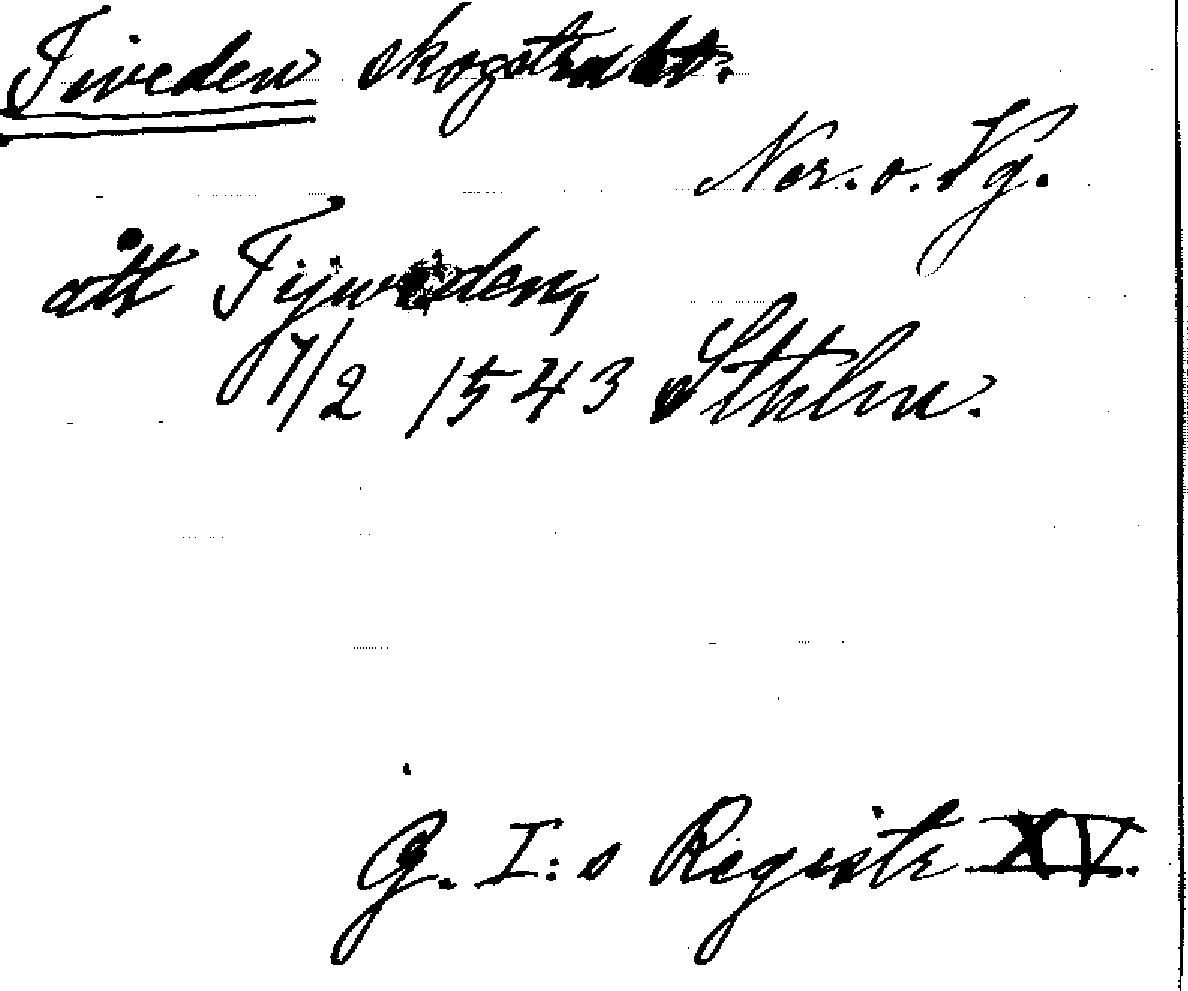 Tiveden skogstrakt.
Ner. o. Vg.
att Tijweden,
17/2 1543 Sthlm.
G. I:s Registr XV.